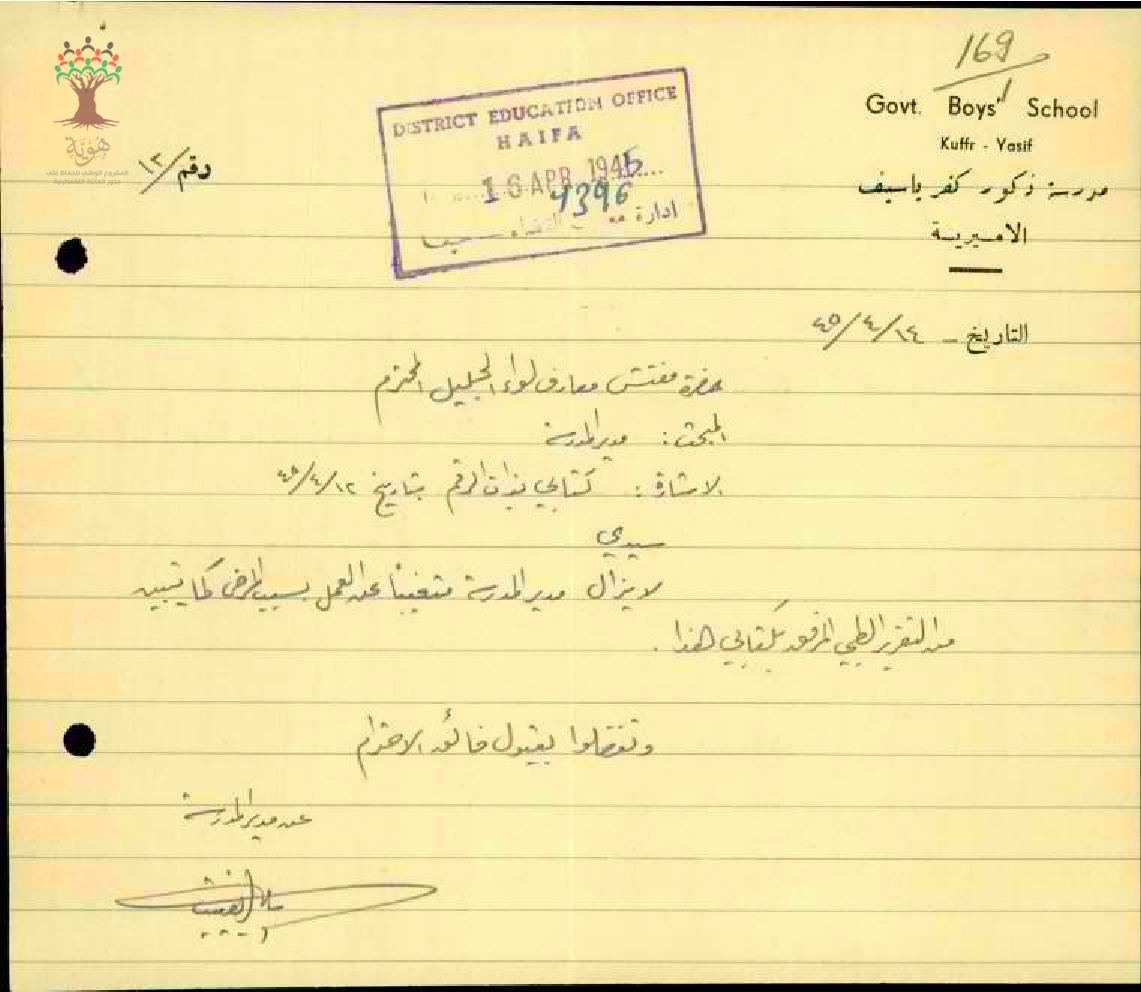 169/1
Govt. Boys' School
Kuffr - Yasif
مدرسة ذكور كفر ياسيف
الاميرية
DISTRICT EDUCATION OFFICE
HAIFA
16 APR 1945
4396
ادارة
رقم /١٣
هوية
المشروع الوطني للحفاظ على
جذور العائلة الفلسطينية
التاريخ ـ ١٤/٤/٤٥
حضرة مفتش معارف لواء الجليل المحترم
المبحث: مدير المدرسة
الاشارة: كتابي بذات الرقم بتاريخ ١٢/٤/٤٥
سيدي
لا يزال مدير المدرسة متغيباً عن العمل بسبب المرض كما يتبين
من التقرير الطبي المرفق بكتابي هذا.
وتفضلوا بقبول فائق الاحترام
عن مدير المدرسة